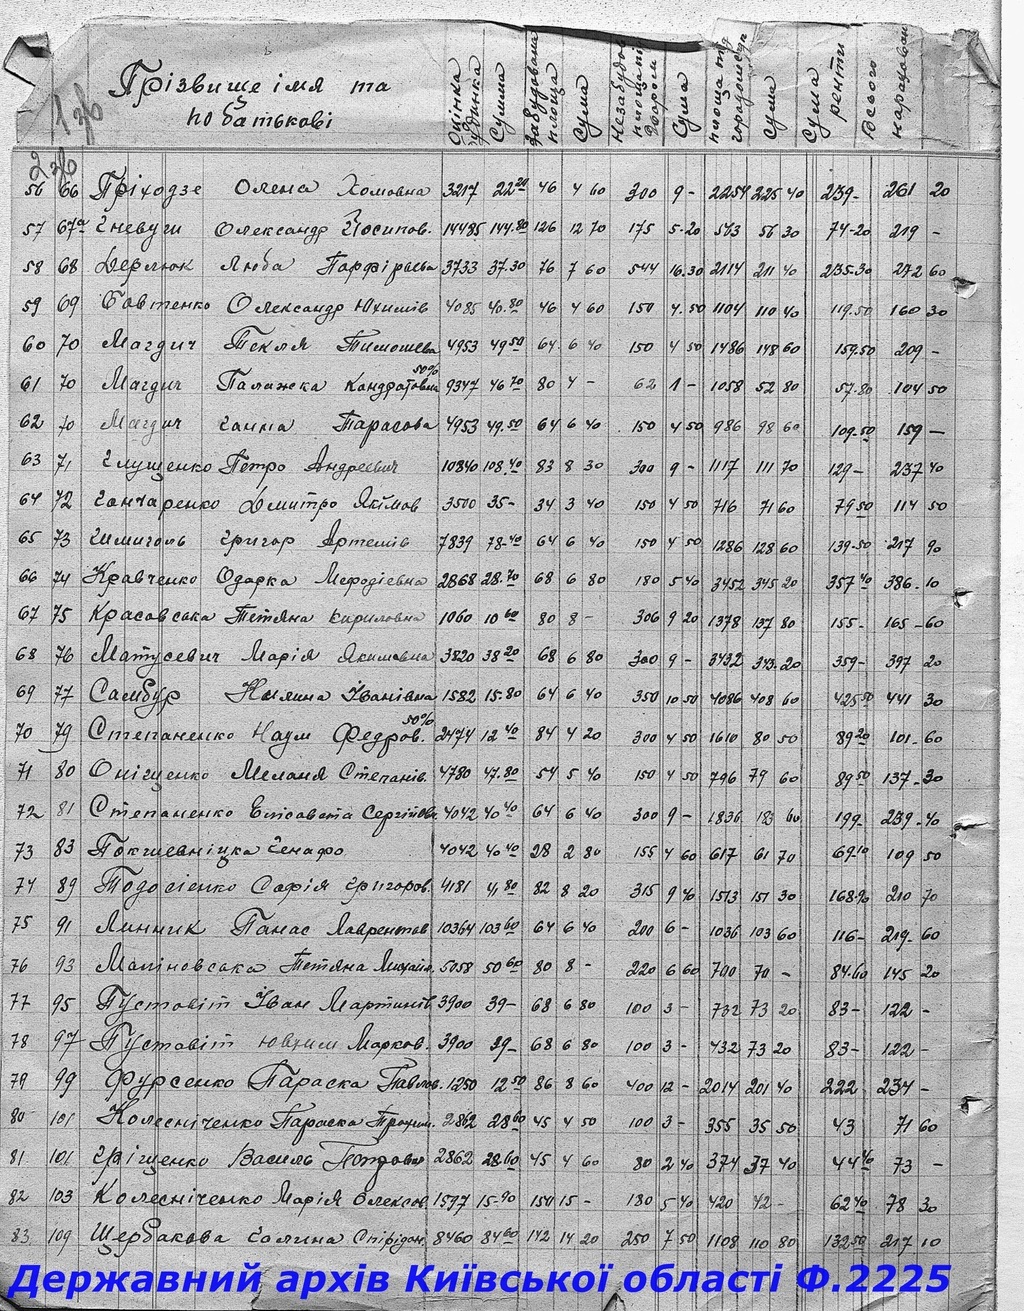 Прізвище імя та
по батькові
Оцінка будинка Сумма Забудована площа Сума Незабудов. площа під двором Сума площа під городом Сума Сума ренти Всього нараховано
56 66 Олена Хомовна 3217 22 20 46 4 60 300 9 - 2254 225 40 239- 261 20
57 67а Гневуш Олександр Йосипов. 14485 144.80 126 12 70 175 5-20 563 56 30 74-20 219 -
58 68 Дерлюк Люба Парфірівна 3733 37.30 76 7 60 544 16.30 2114 211 40 235-30 272 60
59 69 Бовтенко Олександр Юхимів 4085 40.80 46 4 60 150 4.50 1104 110 40 119.50 160 30
60 70 Магдич Текля Тимошевна 4953 49 50 64 6 40 150 4 50 1486 148 60 159.50 209 -
61 70 Магдич Палажка Кандратовна 50% 9347 46 70 80 4 - 62 1 - 1058 52 80 57.80 104 50
62 70 Магдич Ганна Тарасова 4953 49.50 64 6 40 150 4 50 986 98 60 109.50 159 —
63 71 Глущенко Петро Андреевич 10840 108.40 83 8 30 300 9 - 1117 111 70 129- 237 40
64 72 Ганчаренко Дмитро Якімов 3500 35- 34 3 40 150 4 50 716 71 60 79 50 114 50
65 73 Григор Артемів 7839 78-40 64 6 40 150 4 50 1286 128 60 139-50 217 90
66 74 Кравченко Одарка Мефодієвна 2868 28.70 68 6 80 180 5 40 3452 345 20 357 40 386.10
67 75 Красовська Тетяна Кириловна 1060 10 60 80 8 - 306 9 20 1378 137 80 155- 165-60
68 76 Матусевич Марія Якимовна 3820 38 20 68 6 80 300 9 - 3432 343.20 359- 397 20
69 77 Самбур Килина Іванівна 1582 15.80 64 6 40 350 10 50 4086 408 60 425 50 441 30
70 79 Степаненко Наум Федров. 50% 2474 12 40 84 4 20 300 4 50 1610 80 50 89 20 101-60
71 80 Оніщенко Меланя Степанів. 4780 47.80 54 5 40 150 4 50 796 79 60 89 50 137-30
72 81 Степаненко Елісавета Сергіївна 4042 40 40 64 6 40 300 9 - 1836 183 60 199- 239-40
73 83 Генафо 4042 40 40 28 2 80 155 4 60 617 61 70 69 10 109 50
74 89 Тодосієнко Софія Григоров. 4181 41 80 82 8 20 315 9 40 1513 151 30 168.90 210 70
75 91 Линник Панас Лаврентов 10364 103 60 64 6 40 200 6 - 1036 103 60 116- 219- 60
76 93 Маліновська Тетяна Михайл. 5058 50 60 80 8 - 220 6 60 700 70 - 84.60 145 20
77 95 Пустовіт Іван Мартинів 3900 39- 68 6 80 100 3 - 732 73 20 83- 122 -
78 97 Пустовіт Юхим Марков. 3900 39- 68 6 80 100 3 - 432 73 20 83- 122 -
79 99 Фурсенко Параска Павлов. 1250 12 50 86 8 60 400 12 - 2014 201 40 222 234 -
80 101 Колесніченко Параска Трохим. 2862 28 60 45 4 50 100 3 - 355 35 50 43 71 60
81 101 Гріщенко Василь Петрович 2862 28 60 45 4 60 80 2 40 374 37 40 44 40 73 -
82 103 Колесніченко Марія Олексов. 1597 15-90 150 15 - 180 5 40 420 42 - 62 40 78 30
83 109 Щербакова Галина Спірідон. 8460 84 60 142 14 20 250 7 50 1108 110 80 132 50 217 10
Державний архів Київської області Ф.2225